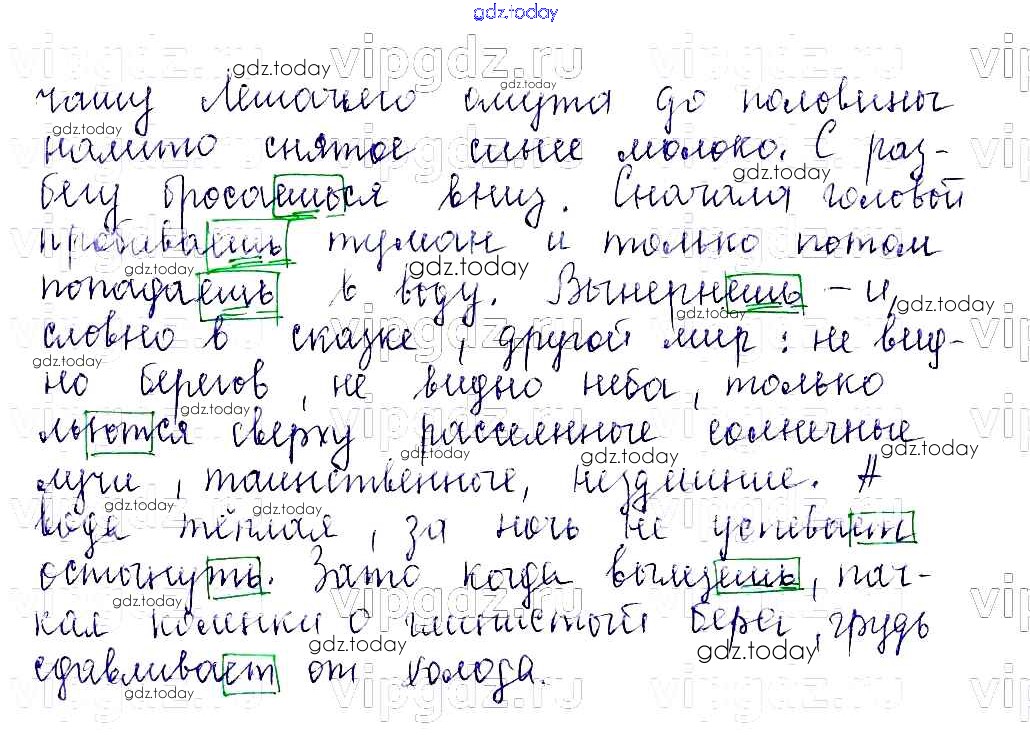 gdz.today
чашу Лешачьего омута до половины
налито снятое синее молоко. С раз-
бегу бросаешься вниз. Сначала головой
пробиваешь туман и только потом
попадаешь в воду. Вынернешь – и,
словно в сказке, другой мир: не вид-
но берегов, не видно неба, только
льются сверху рассеянные солнечные
лучи, таинственные, нездешние. А
вода тёплая, за ночь не успевает
остынуть. Зато когда вылезешь, пач-
кая коленки о глинистый берег, грудь
сдавливает от холода.